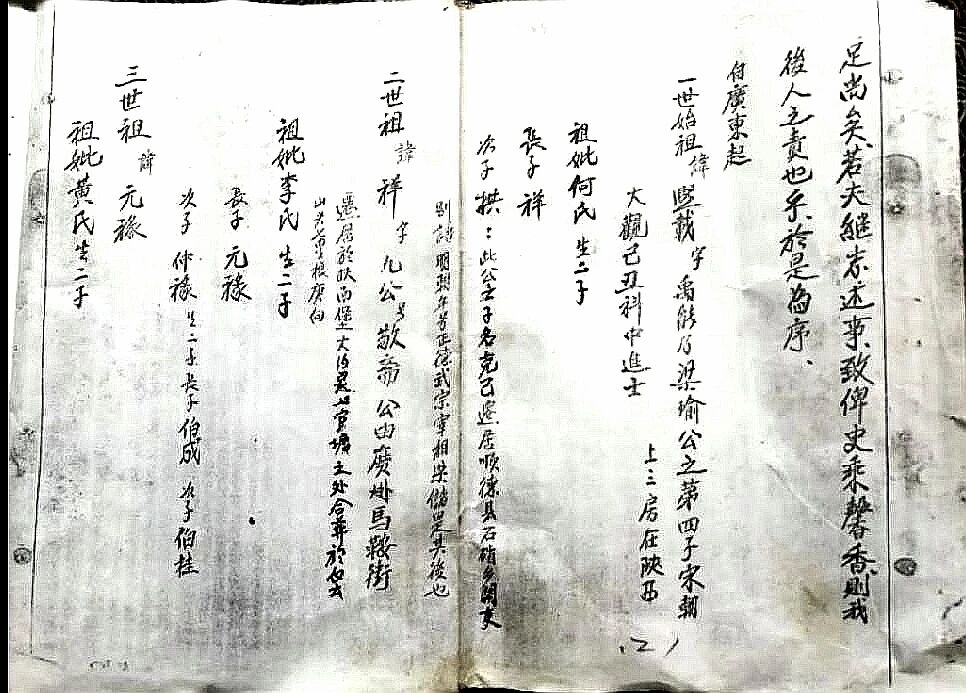 足尚矣、若夫継志述事、致俾史乘馨香、則我
後人之責也乎、於是為序、
付廣東起
一世始祖諱熙載字禹能乃梁瑜公之第四子宋朝
大觀己丑科中進士 上三房在陝西
祖妣何氏生二子
長子祥
次子拱：此公之子名克己遷居順德縣石硝乡開支
別詩明朝年号正德武宗宰相梁儲是其後也
二世祖諱祥字九公号敬斋公由廣州馬鞍街
遷居於 堡 官塘之处合葬於
山
祖妣李氏生二子
長子元祿
次子仲祿生二子長子伯成次子伯桂
三世祖諱元祿
祖妣黃氏生二子
(2)